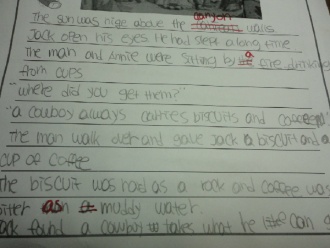 The sun was hige above the canyon walls
Jack open his eyes. He had slept a long time.
The man and Annie were sitting by a fire drinking
from cups
"where did you get them?"
"a cowboy always carries biscuits and coffee
The man walk over and gave Jack a biscuit and a
cup of coffee
The biscuit was hard as a rock and coffee was
bitter as muddy water.
Jack found a cowboy takes what he can